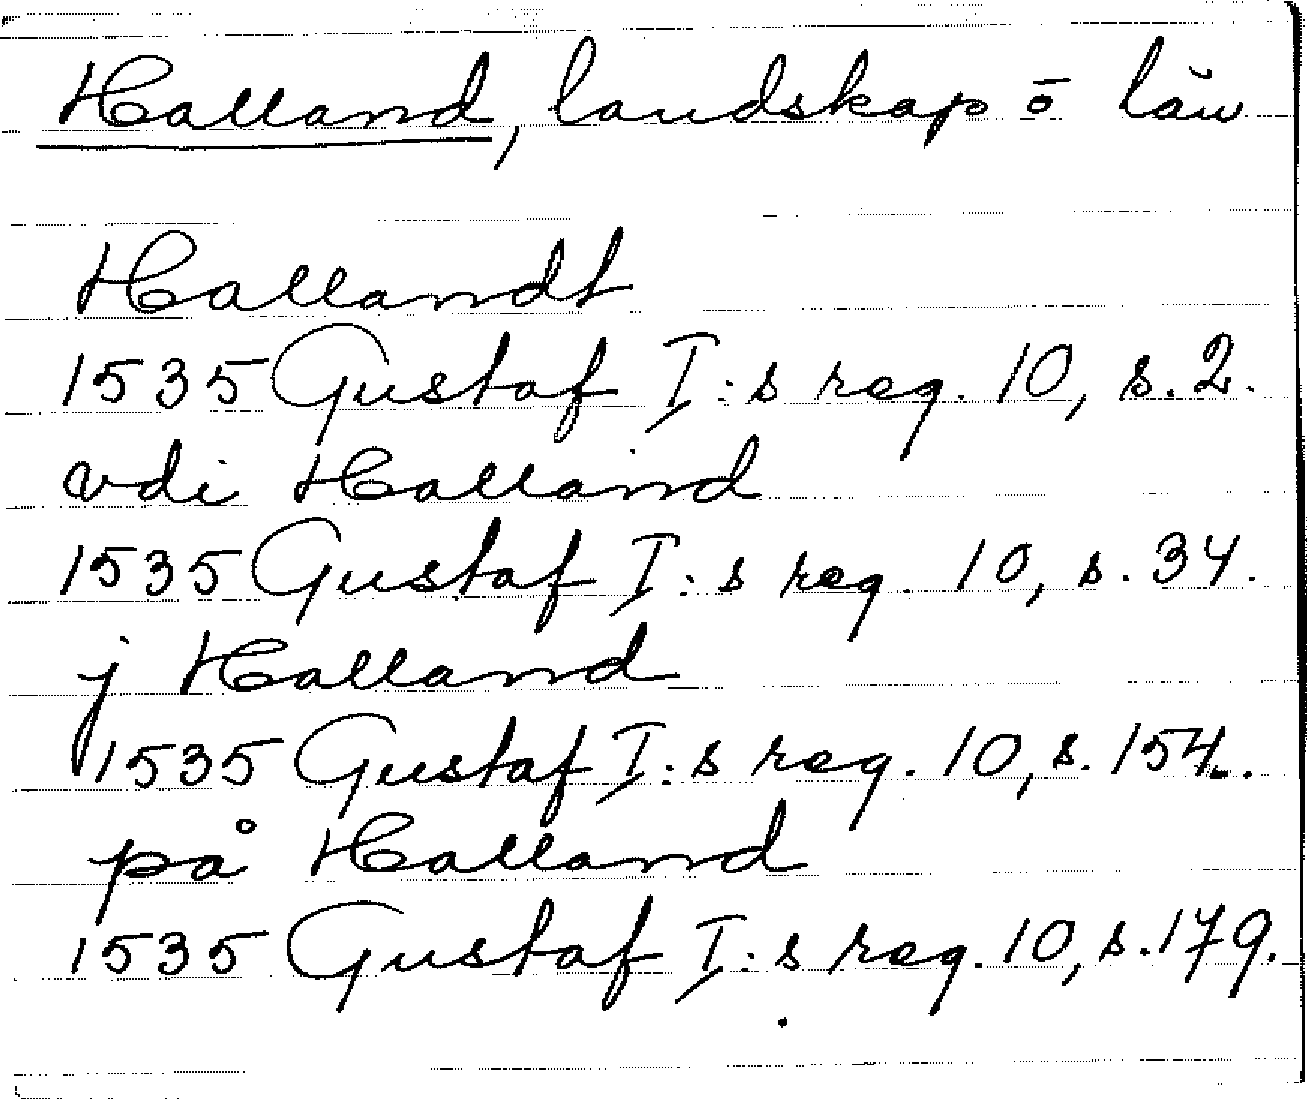 Halland, landskap ō län
Hallandt
1535 Gustaf I:s reg. 10, s. 2.
vdi Halland
1535 Gustaf I:s reg. 10, s. 34.
j Halland
1535 Gustaf I:s reg. 10, s. 154.
på Halland
1535 Gustaf I:s reg. 10, s. 179.